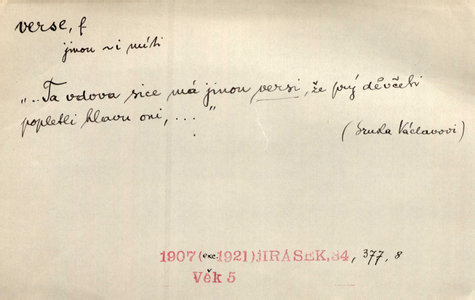 verse, f
jinou ~i míti
„..Ta vdova sice má jinou versi, že prý děvčeti
popletli hlavu oni, ..."
(Sruda Václavovi)
1907(exc.1921)JIRÁSEK,84, 377, 8
Věk 5